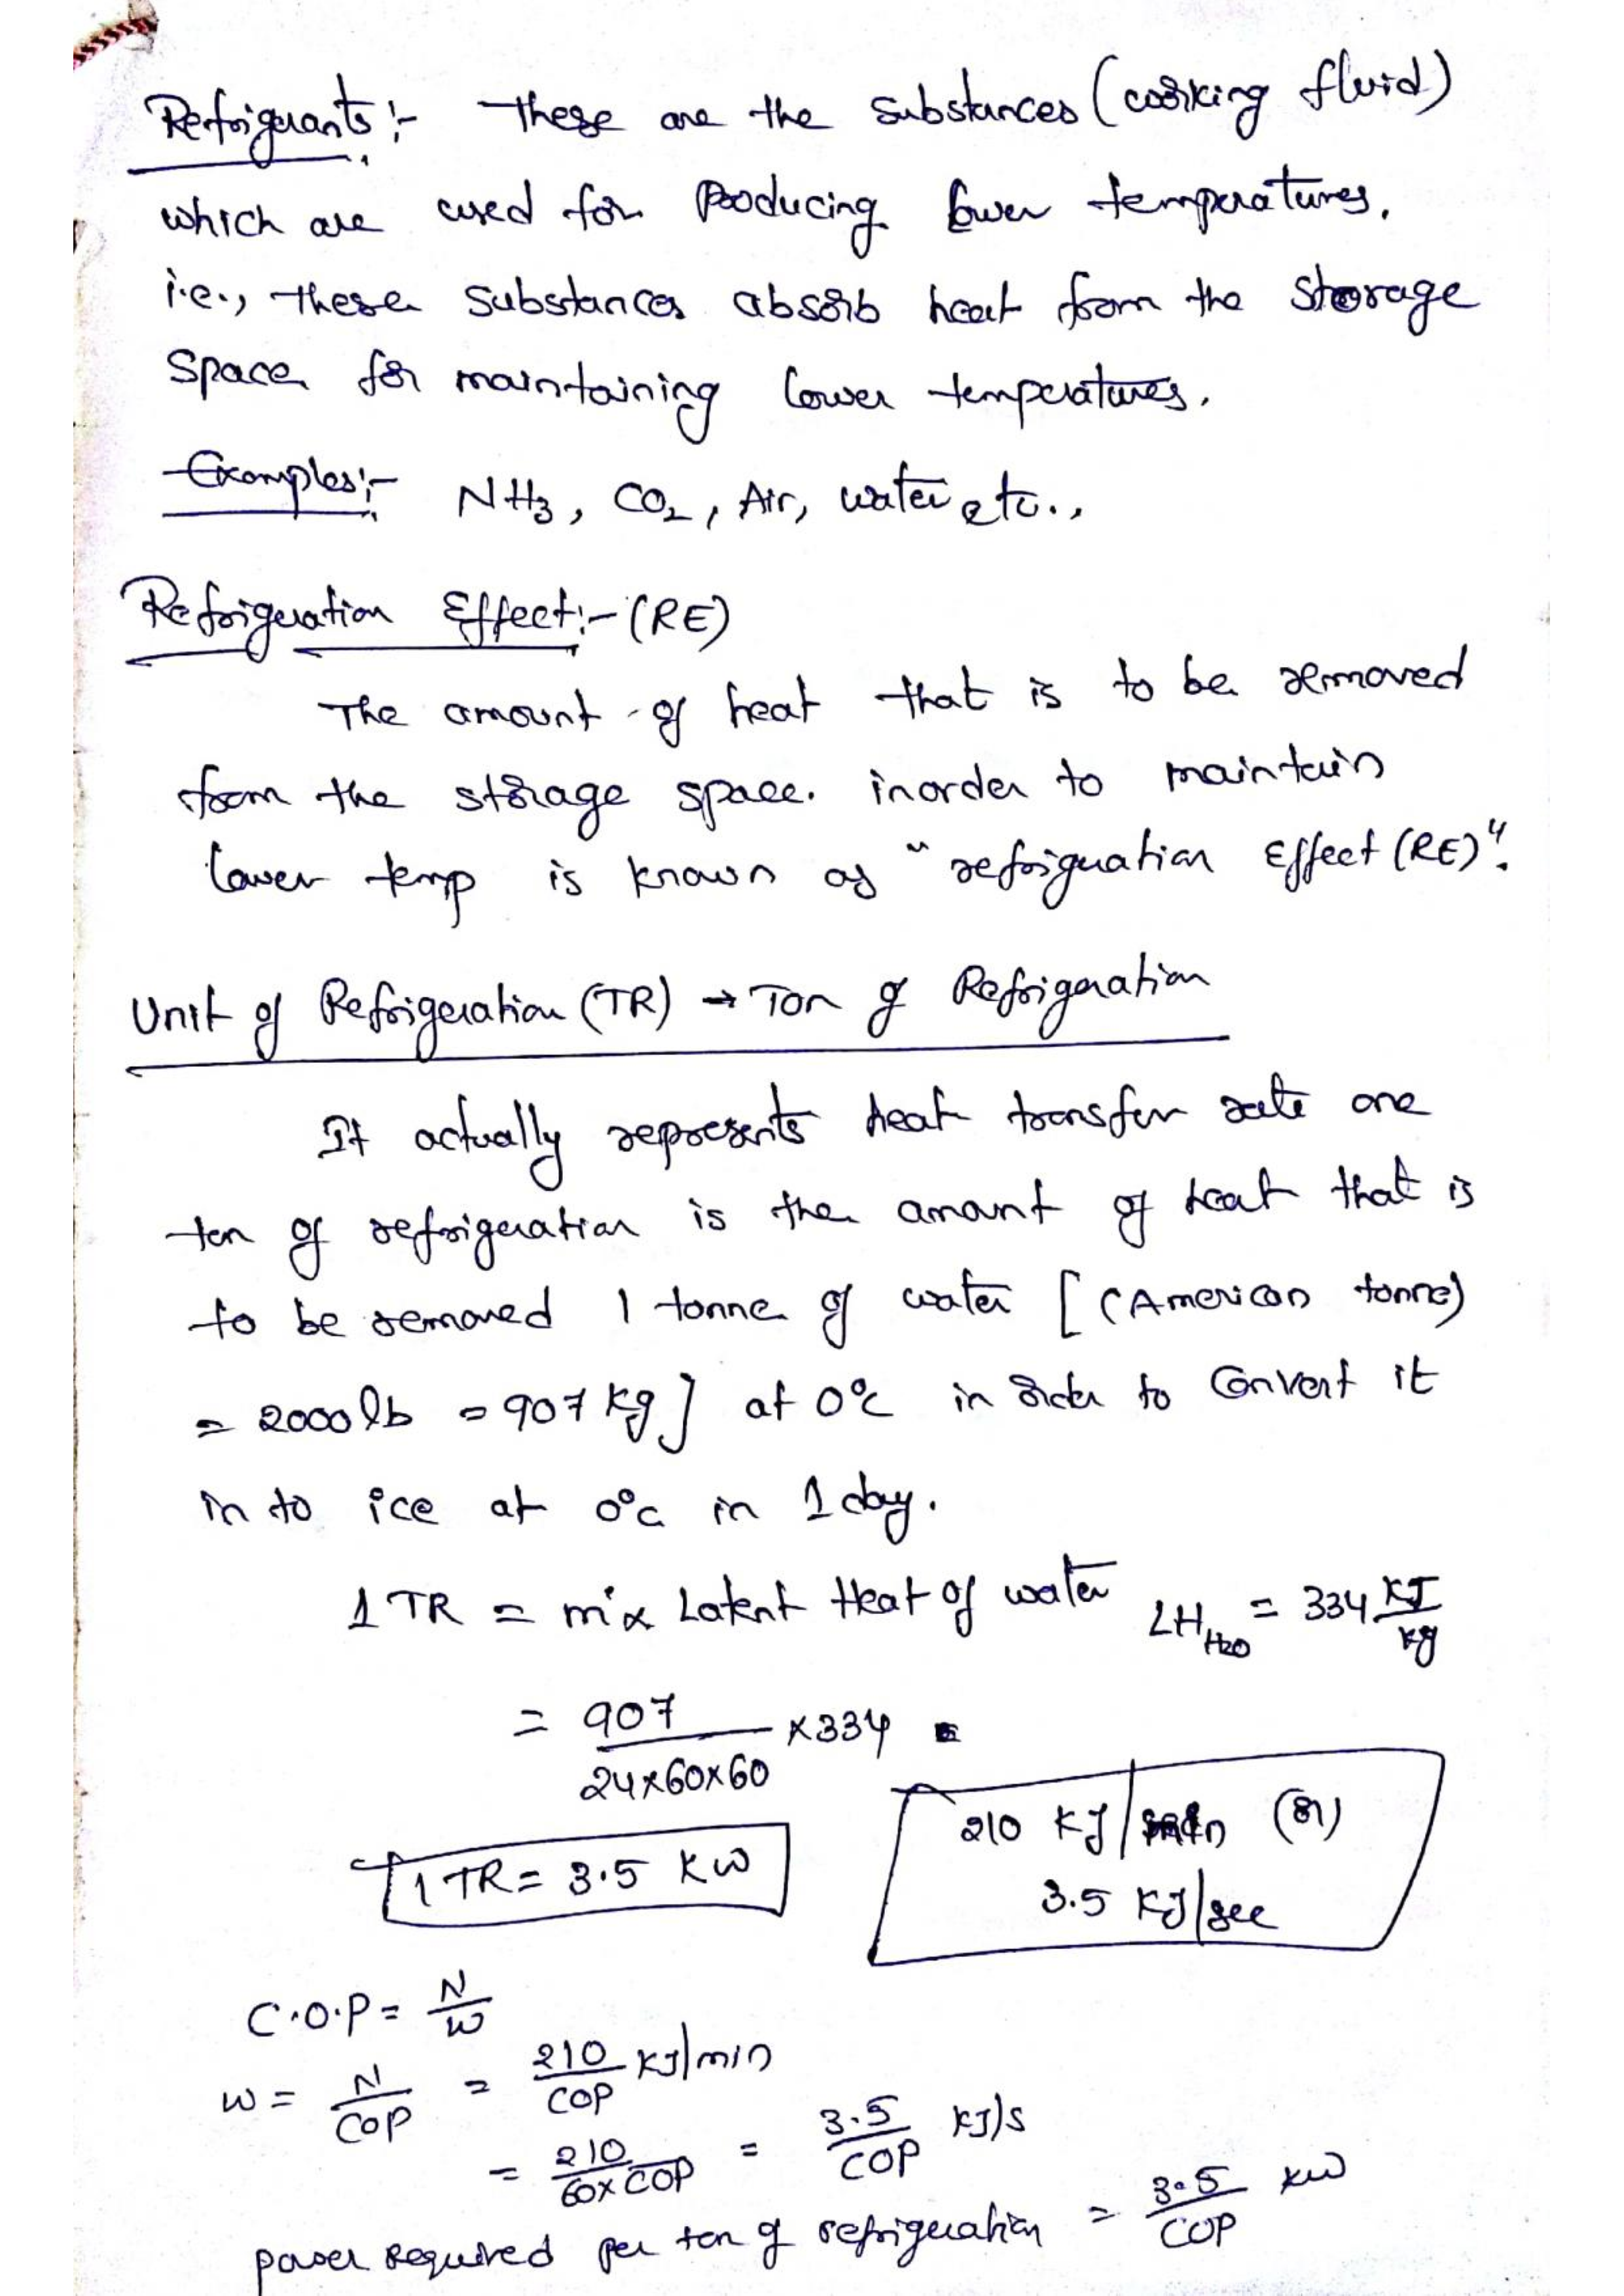 Refrigerants:- These are the substances (working fluid)
which are used for Producing lower temperatures.
i.e., these substances absorb heat from the storage
Space for maintaining lower temperatures.
Examples:- NH3, CO2, Air, water etc..,
Refrigeration Effect:- (RE)
The amount of heat that is to be removed
from the storage space. inorder to maintain
lower temp is known as "refrigeration Effect (RE)".
Unit of Refrigeration (TR) → Ton of Refrigeration
It actually represents heat transfer rate one
ton of refrigeration is the amount of heat that is
to be removed 1 tonne of water [(American tonne)
= 2000 lb = 907 kg] at 0°C in order to Convert it
in to ice at 0°C in 1 day.
1 TR = m x Latent Heat of water LH H2O = 334 KJ/kg
= 907/24x60x60 x 334 =
210 KJ/min (or)
1 TR = 3.5 KW
3.5 KJ/sec
C.O.P = N/W
W = N/COP = 210/COP KJ/min
= 210/60xCOP = 3.5/COP KJ/s
power required per ton of refrigeration = 3.5/COP KW